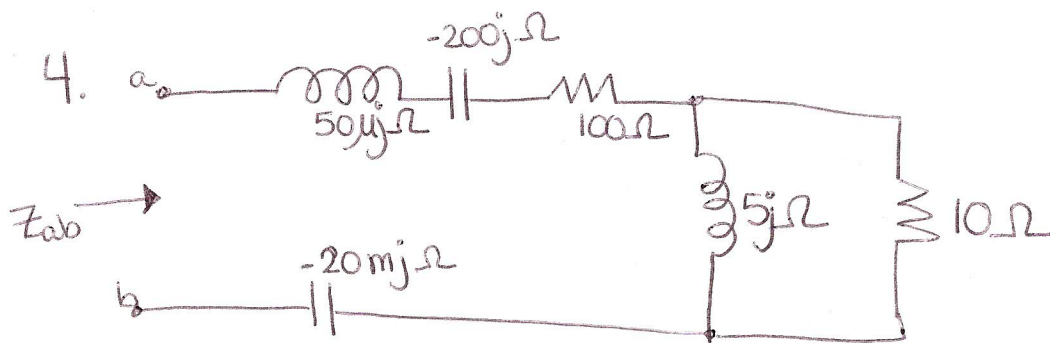 4.
a
-200jΩ
50μjΩ
100Ω
Zab
5jΩ
10Ω
-20mjΩ
b